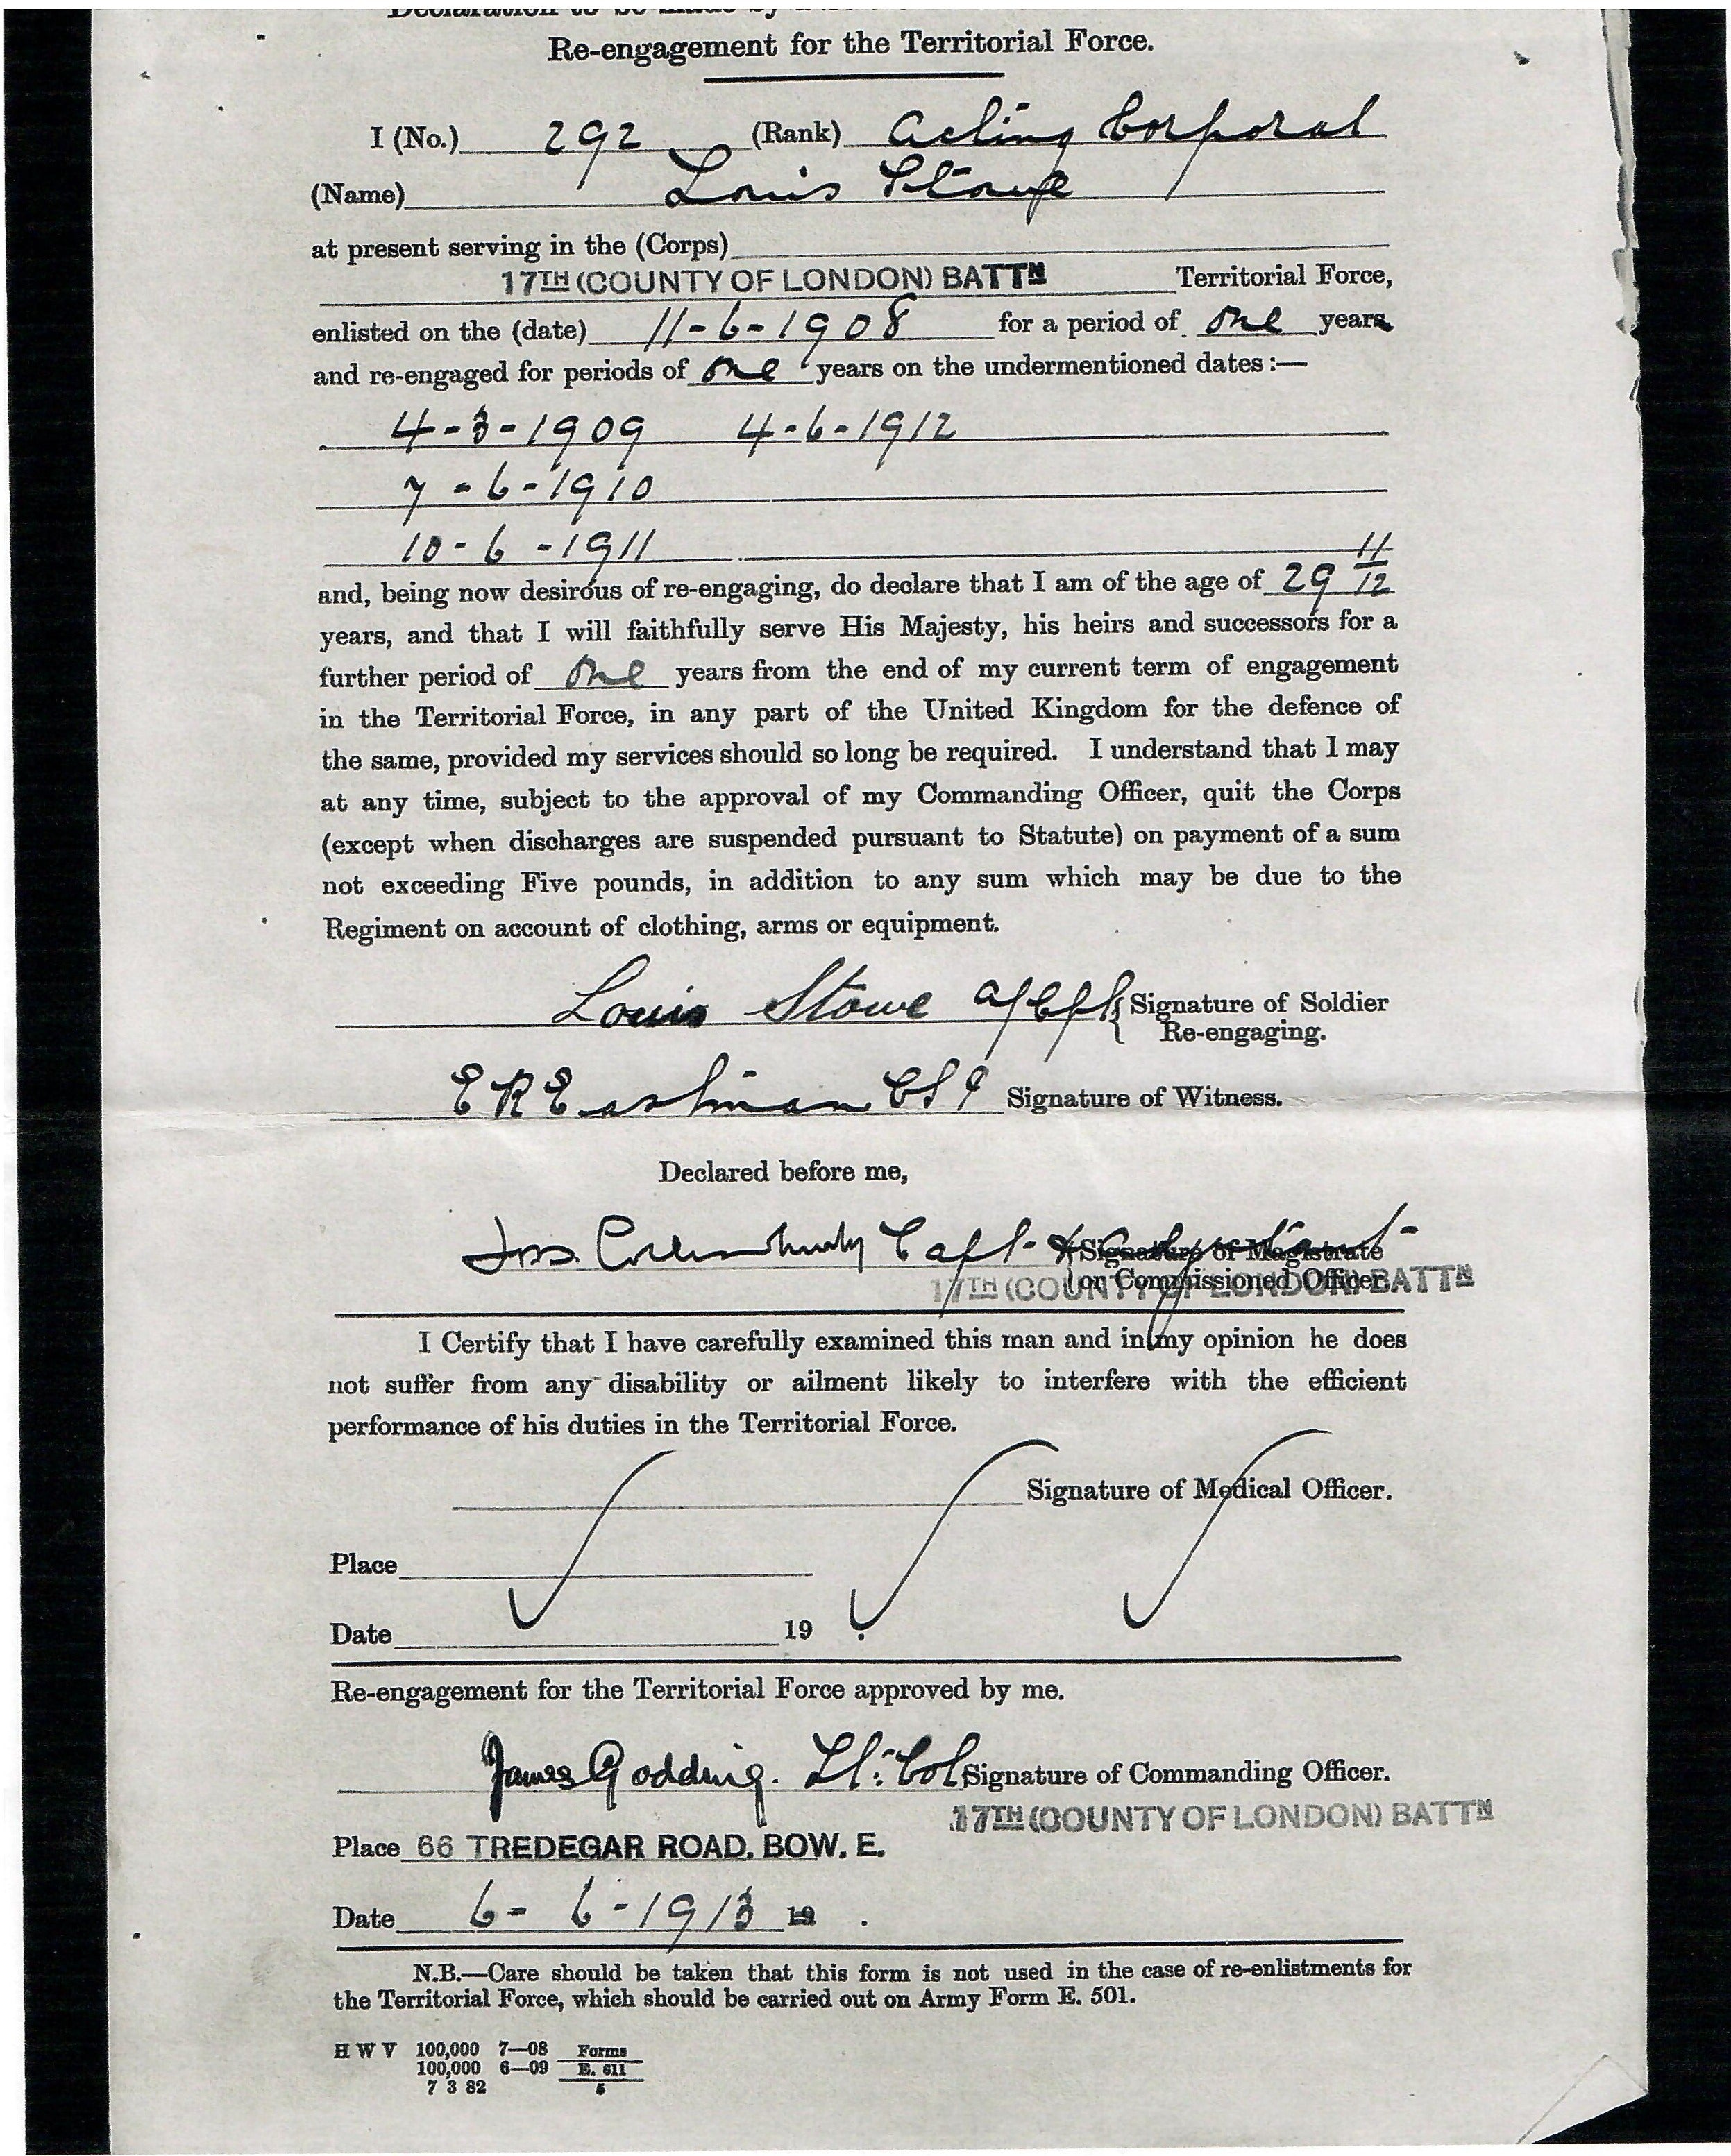 Declaration to be made by a
Re-engagement for the Territorial Force.
I (No.) 292 (Rank) Acting Corporal
(Name) Louis Stowe
at present serving in the (Corps)
17TH (COUNTY OF LONDON) BATTN Territorial Force,
enlisted on the (date) 11-6-1908 for a period of one years
and re-engaged for periods of one years on the undermentioned dates:—
4-3-1909 4-6-1912
7-6-1910
10-6-1911
and, being now desirous of re-engaging, do declare that I am of the age of 29 11/12
years, and that I will faithfully serve His Majesty, his heirs and successors for a
further period of One years from the end of my current term of engagement
in the Territorial Force, in any part of the United Kingdom for the defence of
the same, provided my services should so long be required. I understand that I may
at any time, subject to the approval of my Commanding Officer, quit the Corps
(except when discharges are suspended pursuant to Statute) on payment of a sum
not exceeding Five pounds, in addition to any sum which may be due to the
Regiment on account of clothing, arms or equipment.
Louis Stowe a/Cpl { Signature of Soldier
Re-engaging.
E R Eastman Signature of Witness.
Declared before me,
Jos. Capt & Adjutant Signature of Magistrate
or Commissioned Officer.
17TH (COUNTY OF LONDON) BATTN
I Certify that I have carefully examined this man and in my opinion he does
not suffer from any disability or ailment likely to interfere with the efficient
performance of his duties in the Territorial Force.
Signature of Medical Officer.
Place
Date 19 .
Re-engagement for the Territorial Force approved by me.
James Godding. Lt: Col Signature of Commanding Officer.
17TH (COUNTY OF LONDON) BATTN
Place 66 TREDEGAR ROAD, BOW, E.
Date 6-6-1913 19 .
N.B.—Care should be taken that this form is not used in the case of re-enlistments for
the Territorial Force, which should be carried out on Army Form E. 501.
H W V 100,000 7—08 Forms
100,000 6—09 E. 611
7 3 82 5